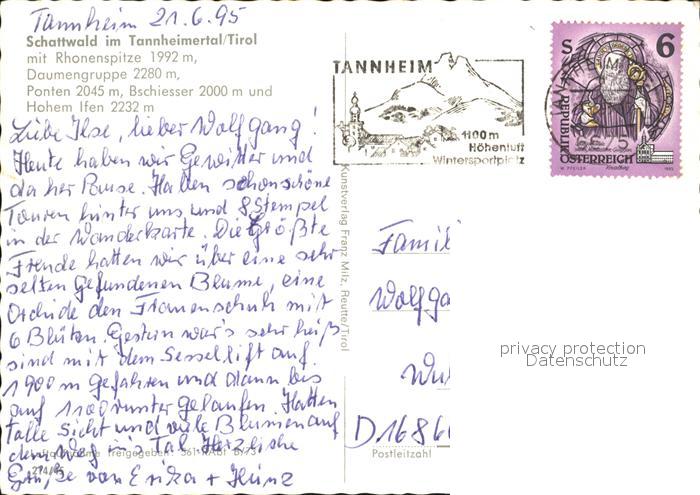 Tannheim 21.6.95
Schattwald im Tannheimertal/Tirol
mit Rhonenspitze 1992 m,
Daumengruppe 2280 m,
Ponten 2045 m, Bschiesser 2000 m und
Hohem Ifen 2232 m
Liebe Ilse, lieber Wolfgang!
Heute haben wir Gewitter und
daher Pause. Haben schon schöne
Touren hinter uns und 8 Stempel
in der Wanderkarte. Die Größte
Freude hatten wir über eine sehr
selten gefundenen Blume, eine
Orchide den Frauenschuh mit
6 Blüten. Gestern war's sehr heiß
sind mit dem Sessellift auf
1900 m gefahren und dann bis
auf 1100 runter gelaufen. Hatten
Tolle Sicht und viele Blumen auf
dem Weg in's Tal. Herzliche
Grüße von Erika + Heinz
Freigegeben:
Kunstverlag Franz Milz, Reutte/Tirol
TANNHEIM
1100m
Höhenluft
Wintersportplatz
S 6
REPUBLIK
ÖSTERREICH
Famil
Wolfga
D 1686
Postleitzahl
privacy protection
Datenschutz